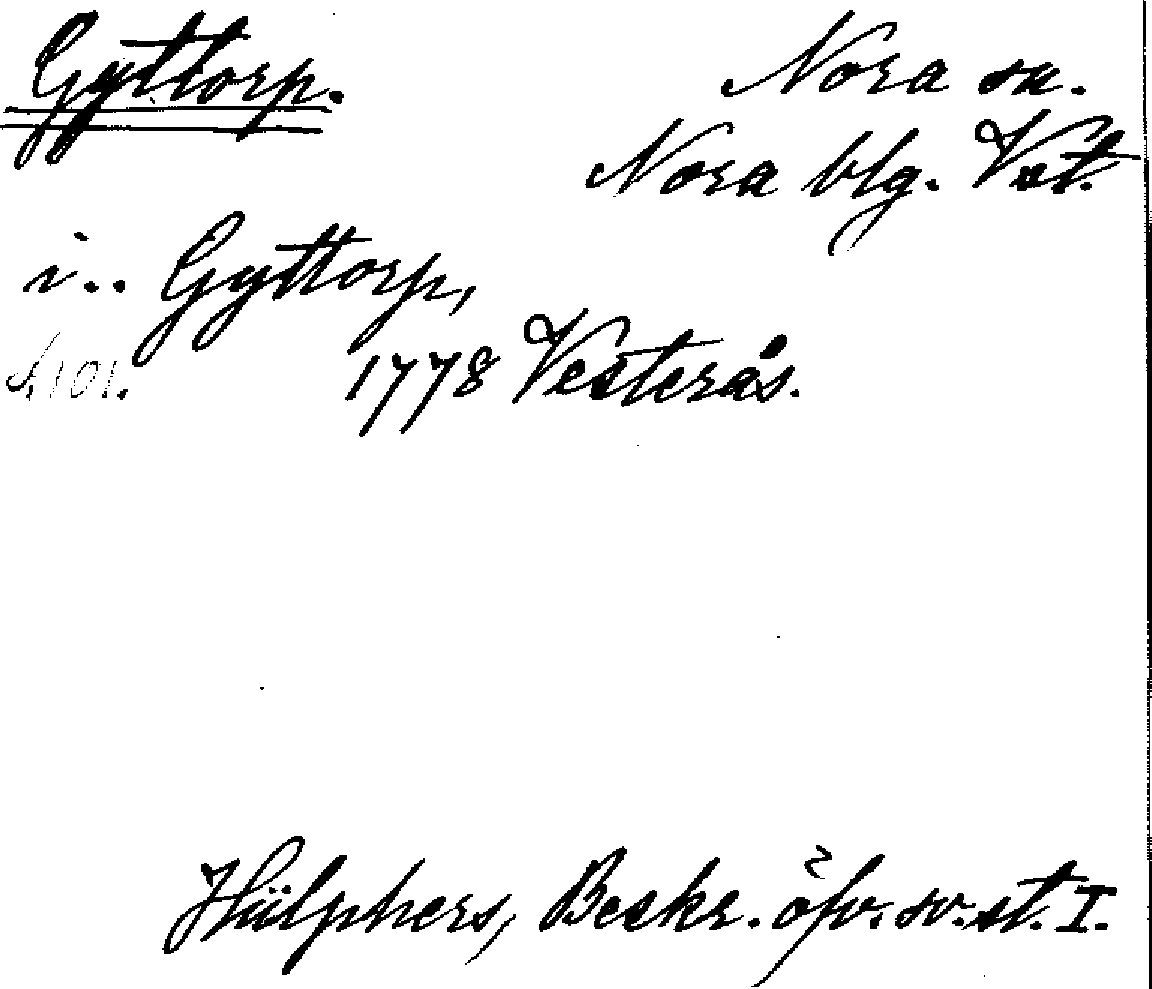 Gyttorp.
Nora sn.
Nora blg. Vst.
i.. Gyttorp,
s. 101.
1778 Vesterås.
Hülphers, Beskr. öfv. sv. st. I.